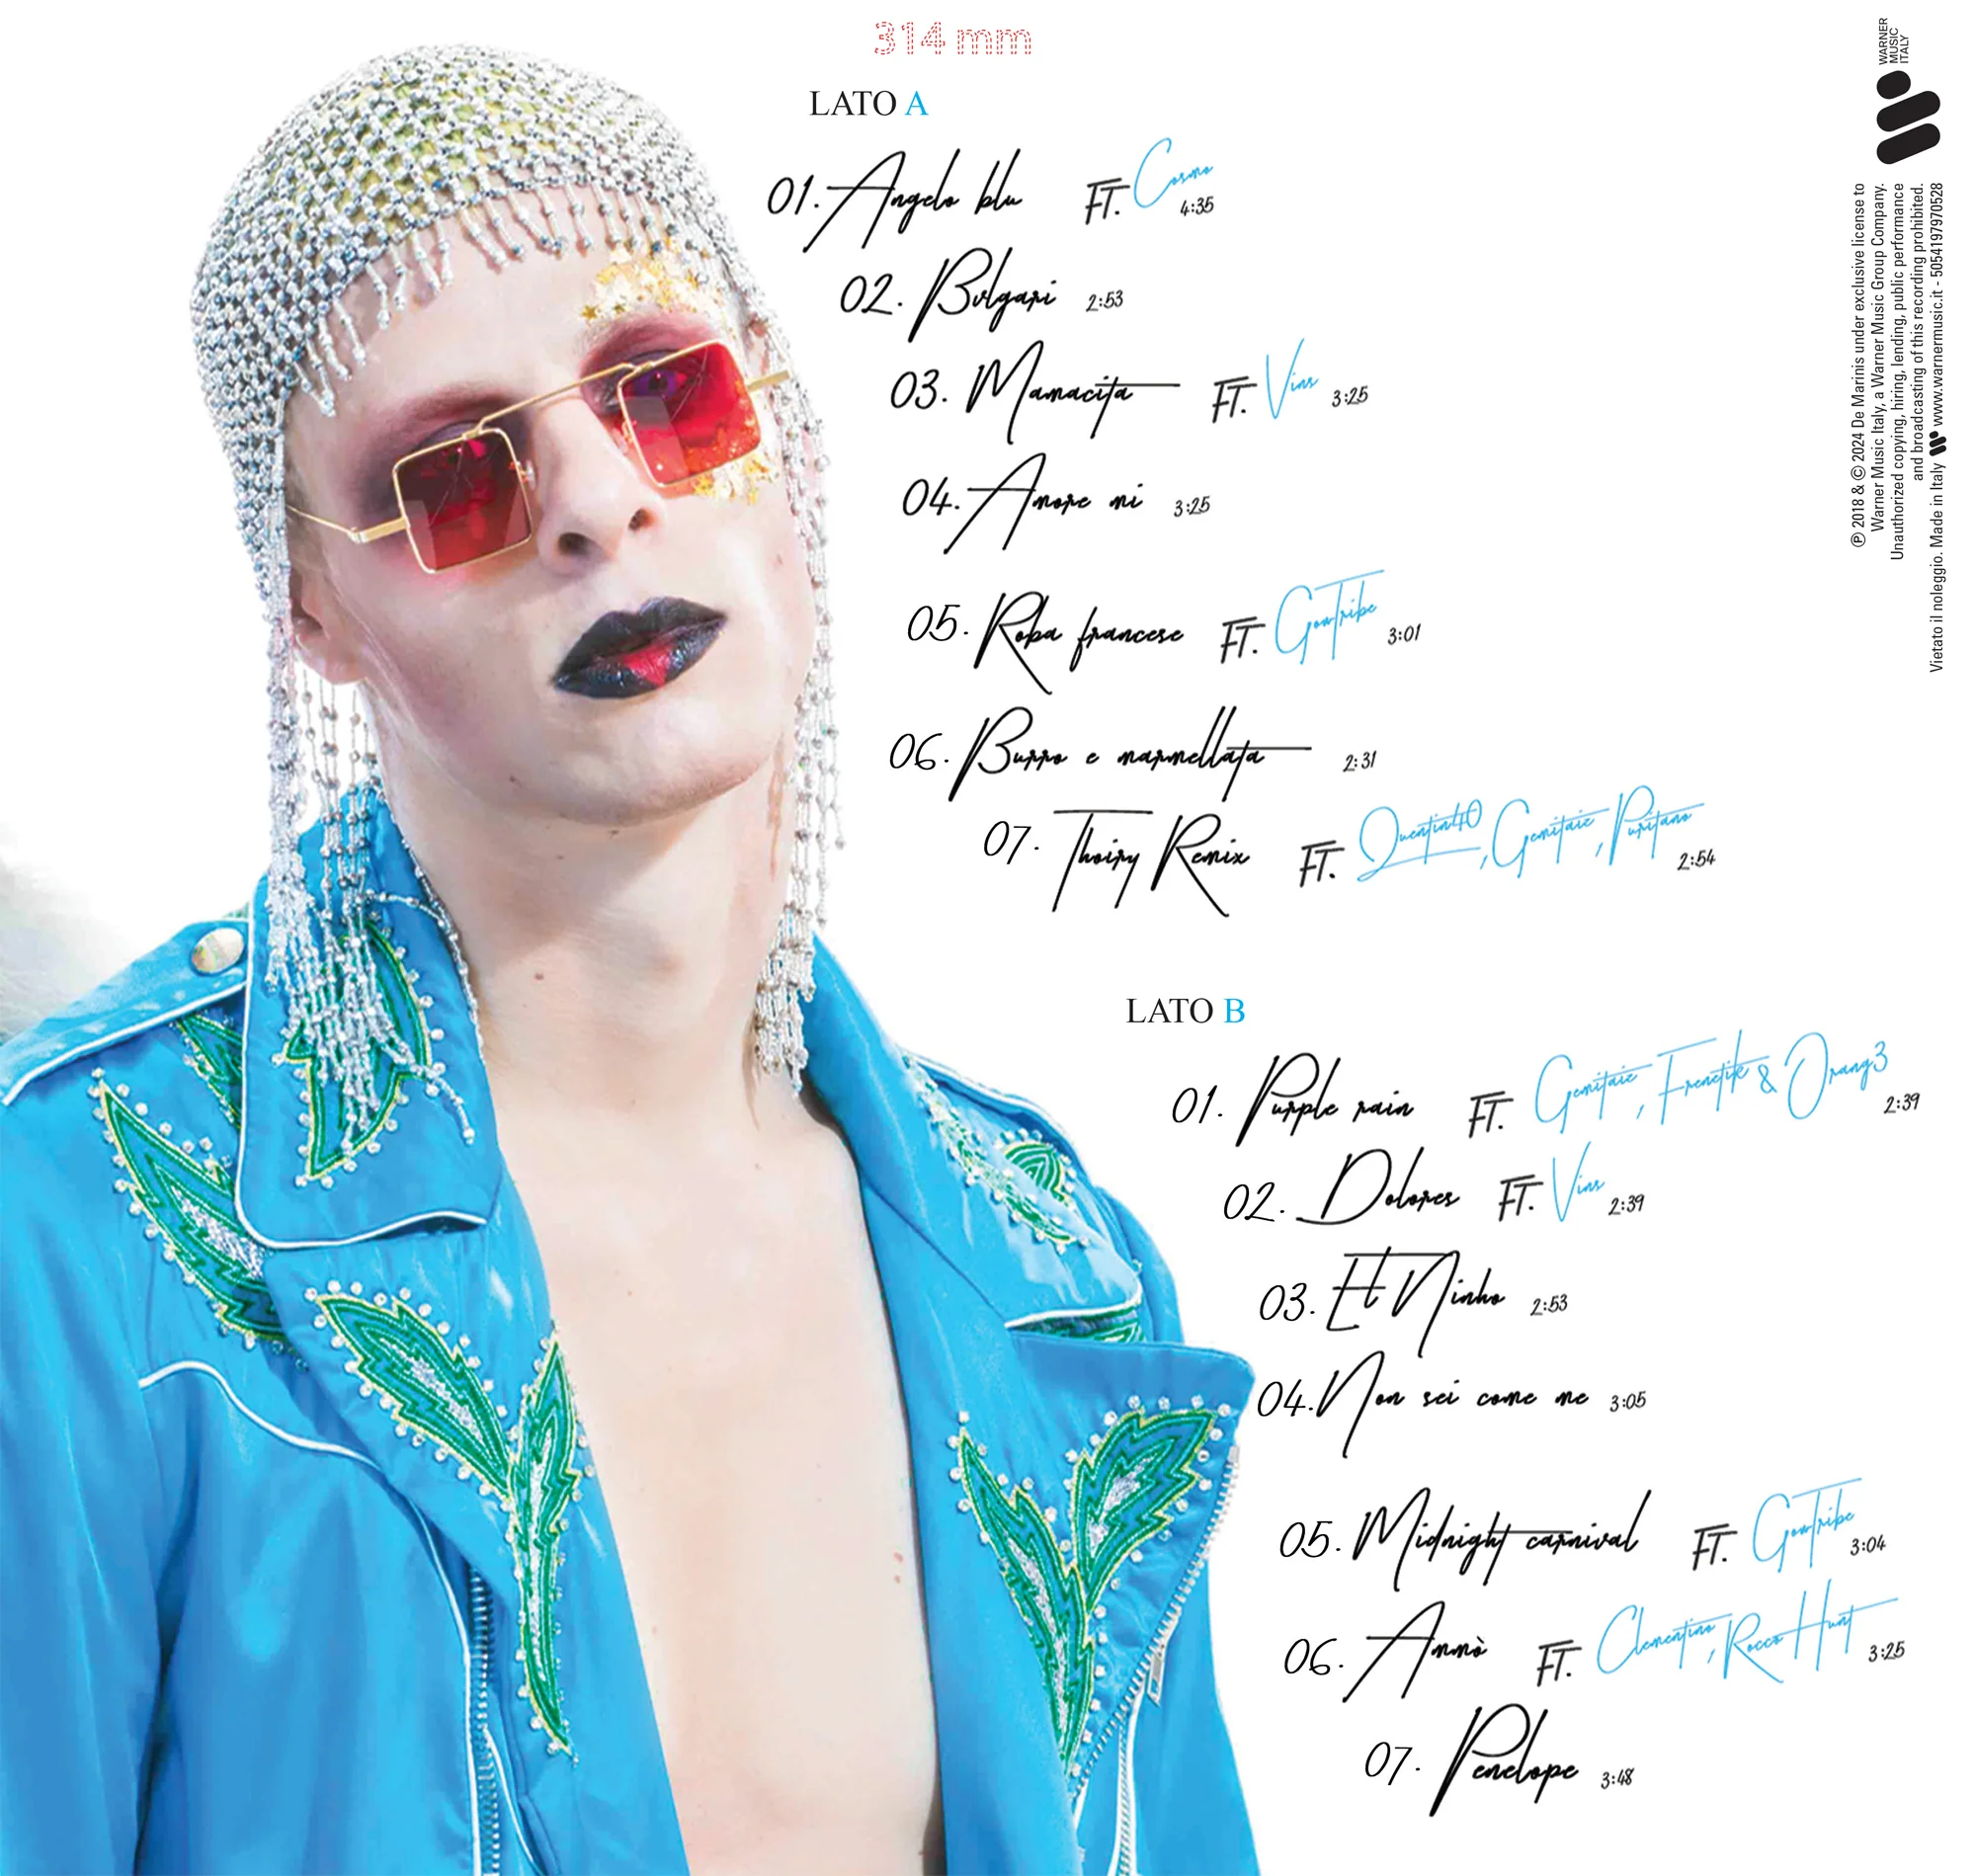 314 mm
LATO A
01. Angelo blu FT. Cosmo 4:35
02. Bvlgari 2:53
03. Mamacita FT. Vins 3:25
04. Amore mi 3:25
05. Roba francese FT. GowTribe 3:01
06. Burro e marmellata 2:31
07. Thoiry Remix FT. Quentin40, Gemitaiz, Puritano 2:54
LATO B
01. Purple rain FT. Gemitaiz, Frenetik & Orang3 2:39
02. Dolores FT. Vins 2:39
03. El Ninho 2:53
04. Non sei come me 3:05
05. Midnight carnival FT. GowTribe 3:04
06. Ammò FT. Clementino, Rocco Hunt 3:25
07. Penelope 3:48
WARNER
MUSIC
ITALY
℗ 2018 & © 2024 De Marinis under exclusive license to
Warner Music Italy, a Warner Music Group Company.
Unauthorized copying, hiring, lending, public performance
and broadcasting of this recording prohibited.
Vietato il noleggio. Made in Italy www.warnermusic.it - 5054197970528